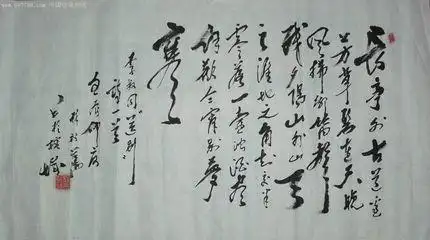 长亭外古道边
芳草碧连天晚
风拂柳笛声
残夕阳山外山天
之涯地之角知交半
零落一壶浊酒尽
余欢今宵别梦
寒
李叔同送别
诗一首